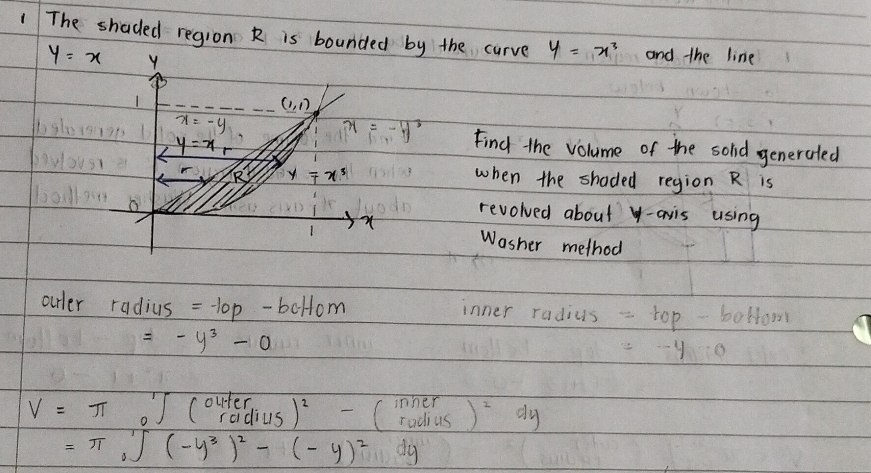 1 The shaded region R is bounded by the curve y = x³ and the line
y = x
y
1
(1,1)
x = -y
x = -y³
y = x
r
r
R
y = x³
0
1
x
Find the volume of the solid generated
when the shaded region R is
revolved about y-axis using
Washer method
outer radius = top - bottom
= -y³ - 0
inner radius = top - bottom
= -y - 0
V = π ₀∫¹ (outer radius)² - (inner radius)² dy
= π ₀∫¹ (-y³)² - (-y)² dy